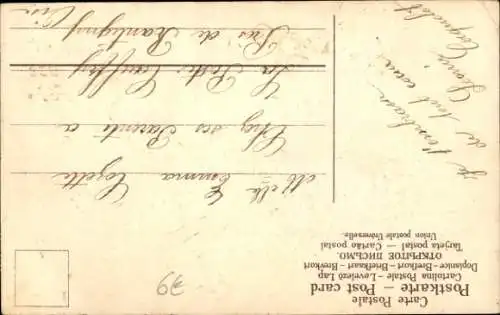 Carte Postale
Postkarte – Post card
Cartolina Postale – Levelező Lap
Dopisnice – Brefkort – Briefkaart – Brevkort
ОТКРЫТОЕ ПИСЬМО.
Tarjeta postal – Cartão postal
Union postale Universelle.
Melle Emma Cozette
Chez ses Parents a
La Poste
Près de Rantigny
Oise
je
de tout cœur
Louis
39